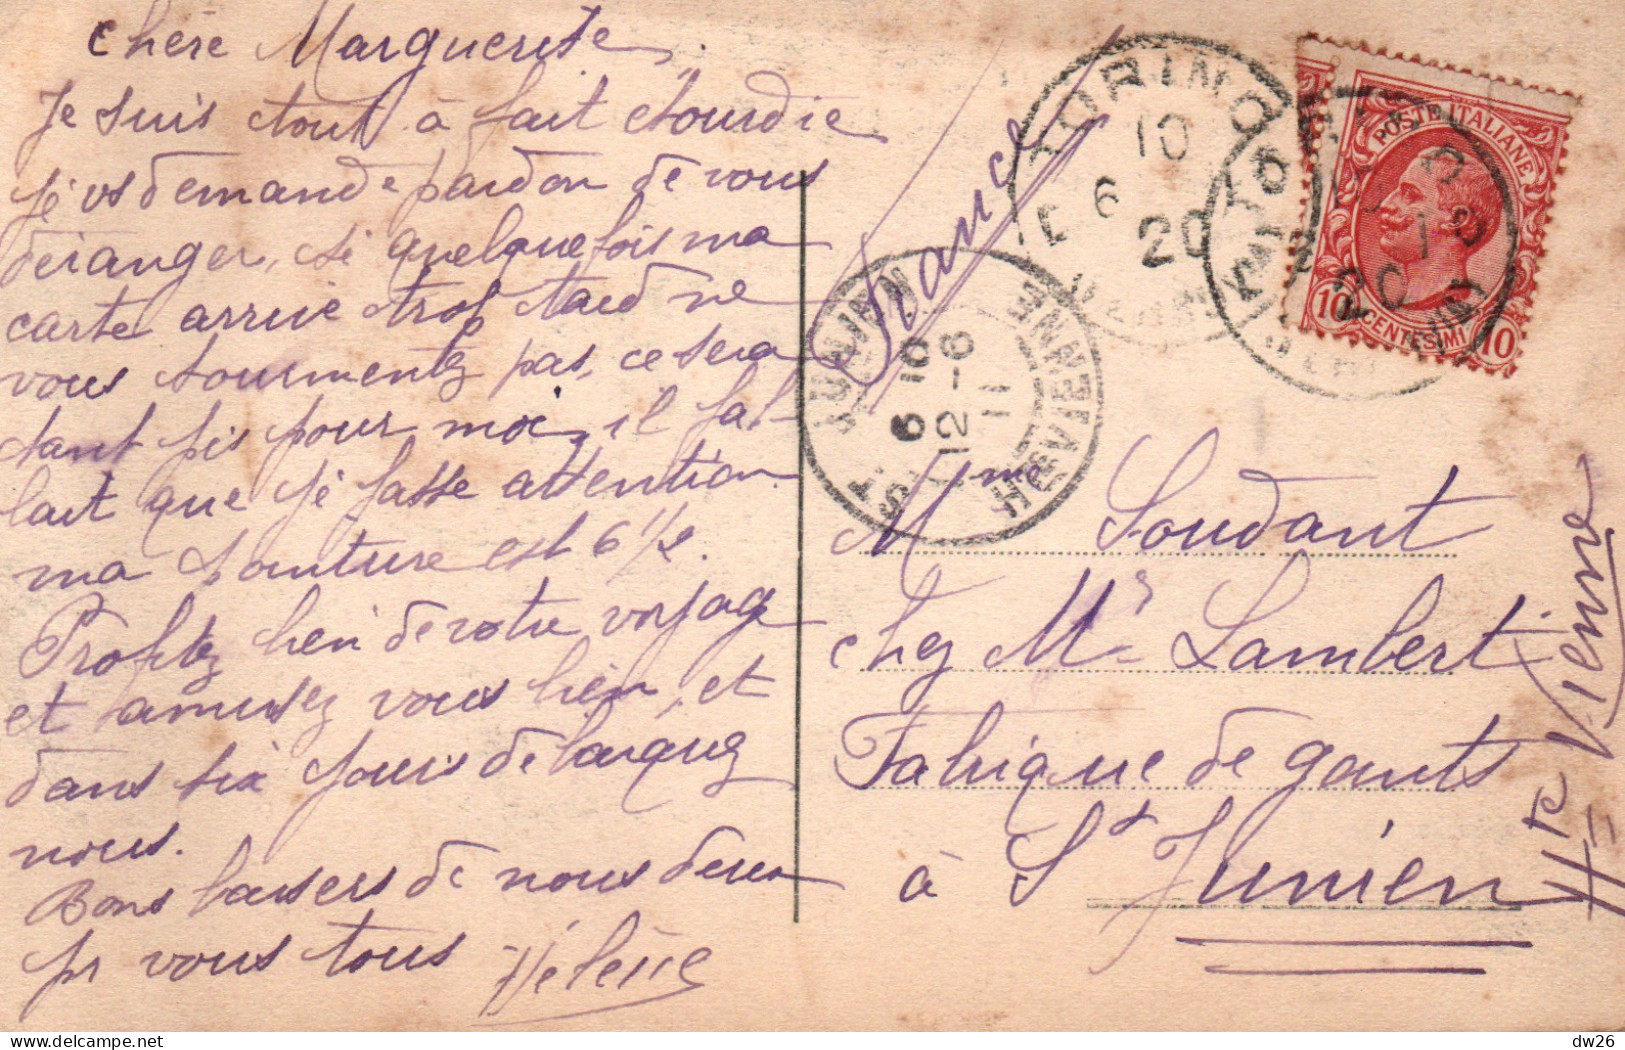 Chère Marguerite.
Je suis tout à fait étourdie
je vs demande pardon de vous
déranger, si quelquefois ma
carte arrive trop tard ne
vous tourmentez pas, ce sera
tant pis pour moi, il fal-
lait que je fasse attention.
ma pointure est 6 1/2.
Profitez bien de votre voyage
et amusez vous bien, et
dans six jours
nous.
Bons baisers de nous deux
pr vous tous Hélène
France
TORINO
10
6
20
POSTE ITALIANE
10 CENTESIMI 10
ST JUNIEN
HTE VIENNE
6 10
12-6
11
Mme Soudant
chez Mr Lambert
Fabrique de gants
à St Junien
Hte Vienne
delcampe.net
dw26